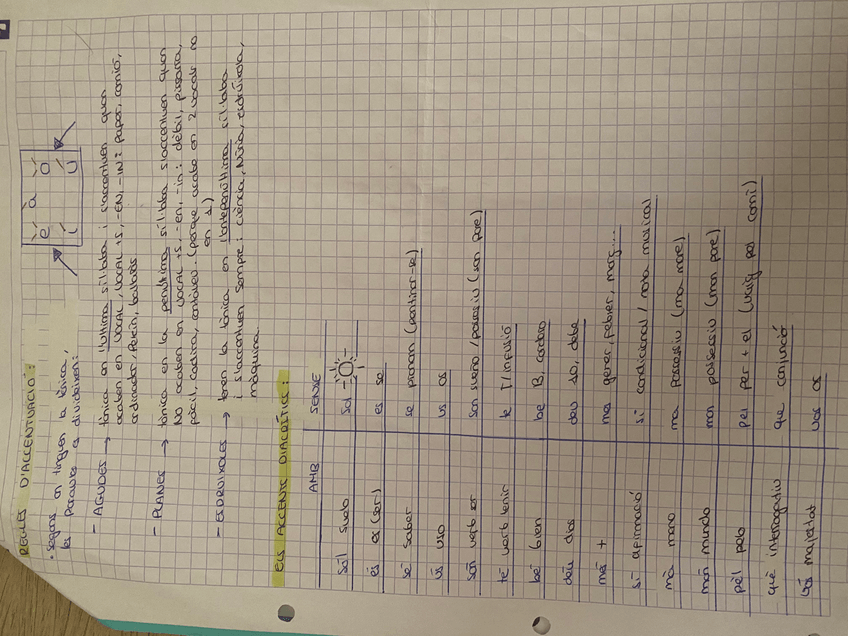 REGLES D'ACCENTUACIÓ:
• Segons on tinguem la tònica,
les paraules es divideixen:
è à ò
é í ó ú
- AGUDES → tònica en l'última síl·laba i s'accentuen quan
acaben en VOCAL, VOCAL +S, -EN, -IN: paper, camió,
ordinador, Pequín,
- PLANES → tònica en la penúltima síl·laba s'accentuen quan
NO acaben en VOCAL +S, -en, -in: dèbil, pissarra,
fàcil, cadira, cantàveu.. (perquè acaba en 2 vocals no
en 1)
- ESDRÚIXOLES → tenen la tònica en l'antepenúltima síl·laba
i s'accentuen sempre: ciència, Núria, esdrúixola,
màquina.
ELS ACCENTS DIACRÍTICS:
AMB SENSE
sòl suelo sol
és es (ser) es se
sé saber se pronom (pentinar-se)
ús uso us os
són verb ser son sueño/possessiu (son pare)
té verb tenir te T/infusió
bé bien be B, cordero
déu dios deu 10, debe
més + mes gener, febrer, març...
sí afirmació si condicional / nota musical
mà mano ma possessiu (ma mare)
món mundo mon possessiu (mon pare)
pèl pelo pel per + el (vaig pel camí)
què interrogatiu que conjunció
vós majestat vos os